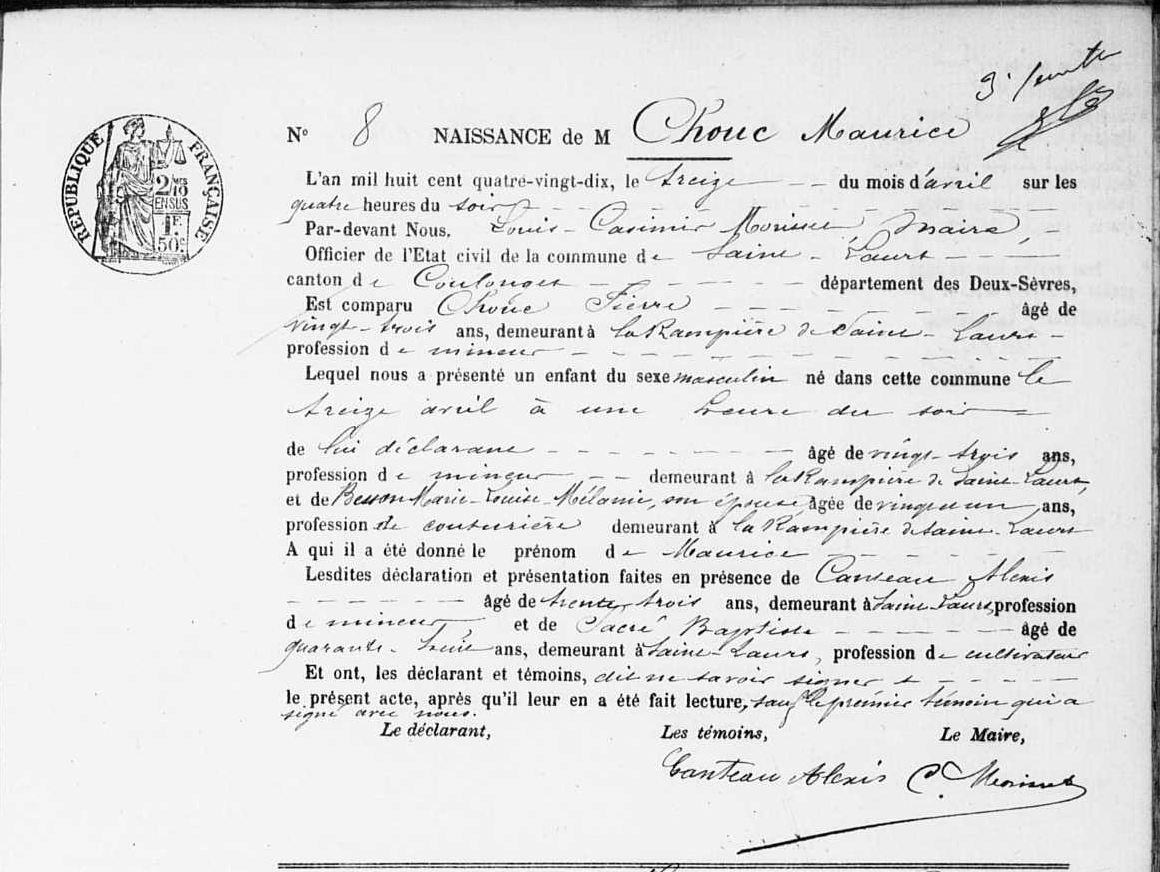 RÉPUBLIQUE FRANÇAISE
2/10 MES
EN SUS
1F.
50c
N° 8 NAISSANCE de M Chouc Maurice
L'an mil huit cent quatre-vingt-dix, le treize du mois d'avril sur les
quatre heures du soir
Par-devant Nous, Louis-Casimir Morisset, maire,
Officier de l'Etat civil de la commune de Saint-Laurs
canton de Coulonges département des Deux-Sèvres,
Est comparu Chouc Pierre âgé de
vingt-trois ans, demeurant à la Rampière de Saint-Laurs
profession de mineur
Lequel nous a présenté un enfant du sexe masculin né dans cette commune le
treize avril à une heure du soir
de lui déclarant âgé de vingt-trois ans,
profession de mineur demeurant à la Rampière de Saint-Laurs,
et de Besson Marie-Louise-Mélanie, son épouse, âgée de vingt un ans,
profession de couturière demeurant à la Rampière de Saint-Laurs
A qui il a été donné le prénom de Maurice
Lesdites déclaration et présentation faites en présence de Canteau Alexis
âgé de trente trois ans, demeurant à Saint-Laurs, profession
de mineur, et de Sacré Baptiste âgé de
quarante-huit ans, demeurant à Saint-Laurs, profession de cultivateur
Et ont, les déclarant et témoins, dit ne savoir signer
le présent acte, après qu'il leur en a été fait lecture, sauf le premier témoin qui a
signé avec nous.
Le déclarant, Les témoins, Le Maire,
Canteau Alexis C. Morisset